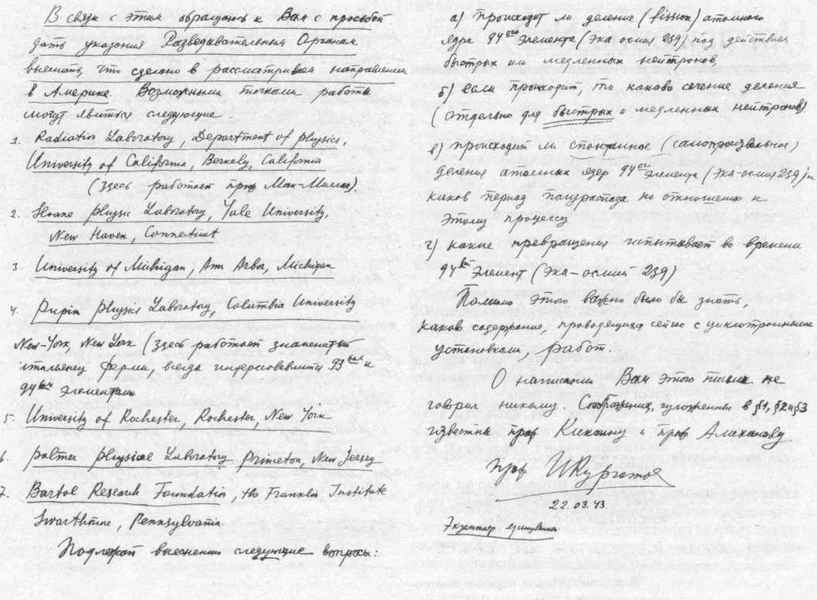 В связи с этим обращаюсь к Вам с просьбой
дать указания Разведывательным Органам
выяснить, что сделано в рассматриваемом направлении
в Америке. Возможными точками работы
могут явиться следующие.
1. Radiation Laboratory, Department of physics,
University of California, Berkely, California
(здесь работает проф Мак-Милан).
2. Sloane physic Laboratory, Yale University,
New Haven, Connecticut
3 University of Michigan, Ann Arbor, Michigan
4. Pupin physic Laboratory, Columbia University
New-York, New York (здесь работает знаменитый
итальянец Ферми, всегда интересовавшийся 93 и
94 элементами
5. University of Rochester, Rochester, New York
6. palmer physical Laboratory Princeton, New Jersey
7. Bartol Research Foundation, the Franklin Institute
Swarthmore, Pennsylvania
Подлежат выяснению следующие вопросы:
а) происходит ли деление (fission) атомного
ядра 94ого элемента (эка-осмия 239) под действием
быстрых или медленных нейтронов,
б) если происходит, то каково сечение деления
(отдельно для быстрых и медленных нейтронов)
в) происходит ли спонтанное (самопроизвольное)
деление атомных ядер 94ого элемента (эка-осмия 239) и
каков период полураспада по отношению к
этому процессу
г) какие превращения испытывает во времени
94ый элемент (эка-осмий-239)
Помимо этого важно было бы знать,
каково содержание, проводящихся сейчас с циклотронными
установками, работ.
О написании Вам этого письма не
говорил никому. Соображения, изложенные в §1, §2 и §3
известны проф Кикоину и проф Алиханову
Проф ИКурчатов
22.03.43
Экземпляр единственный